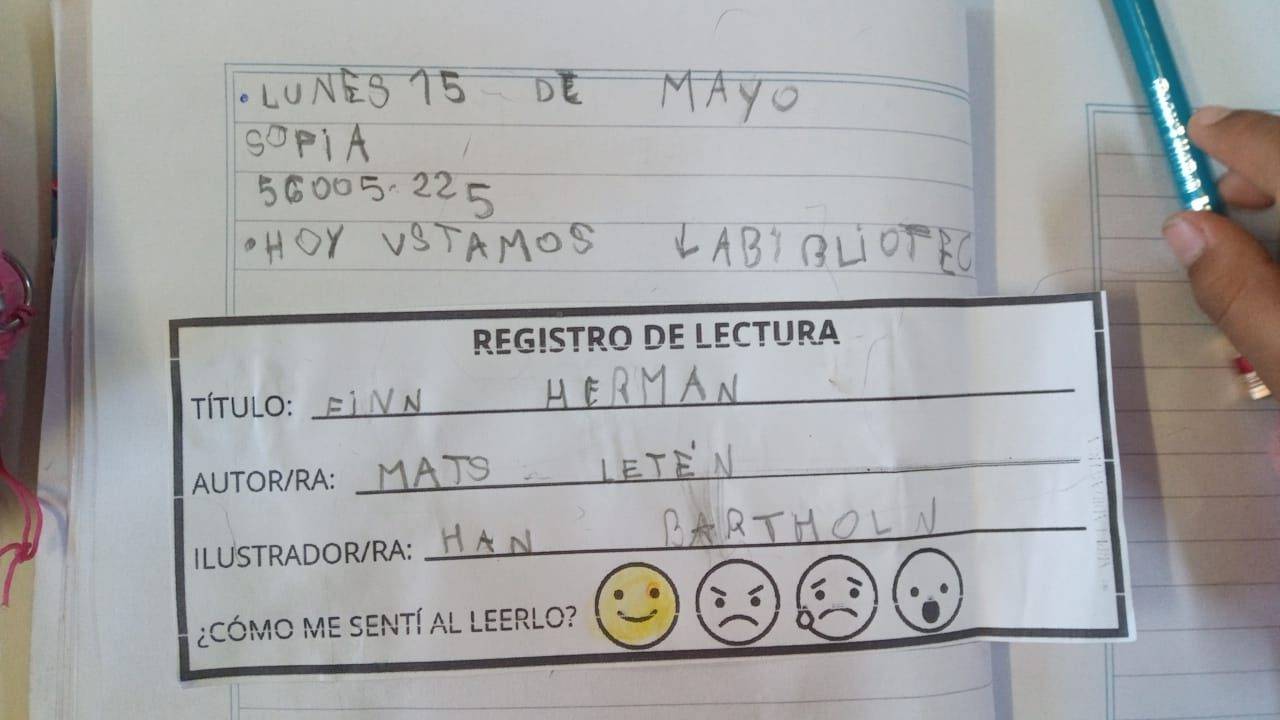 • LUNES 15 DE MAYO
SOPIA
56005-225
• HOY VSTAMOS LABIBLIOTEC
REGISTRO DE LECTURA
TÍTULO: FINN HERMAN
AUTOR/RA: MATS LETÉN
ILUSTRADOR/RA: HAN BARTHOLN
¿CÓMO ME SENTÍ AL LEERLO?